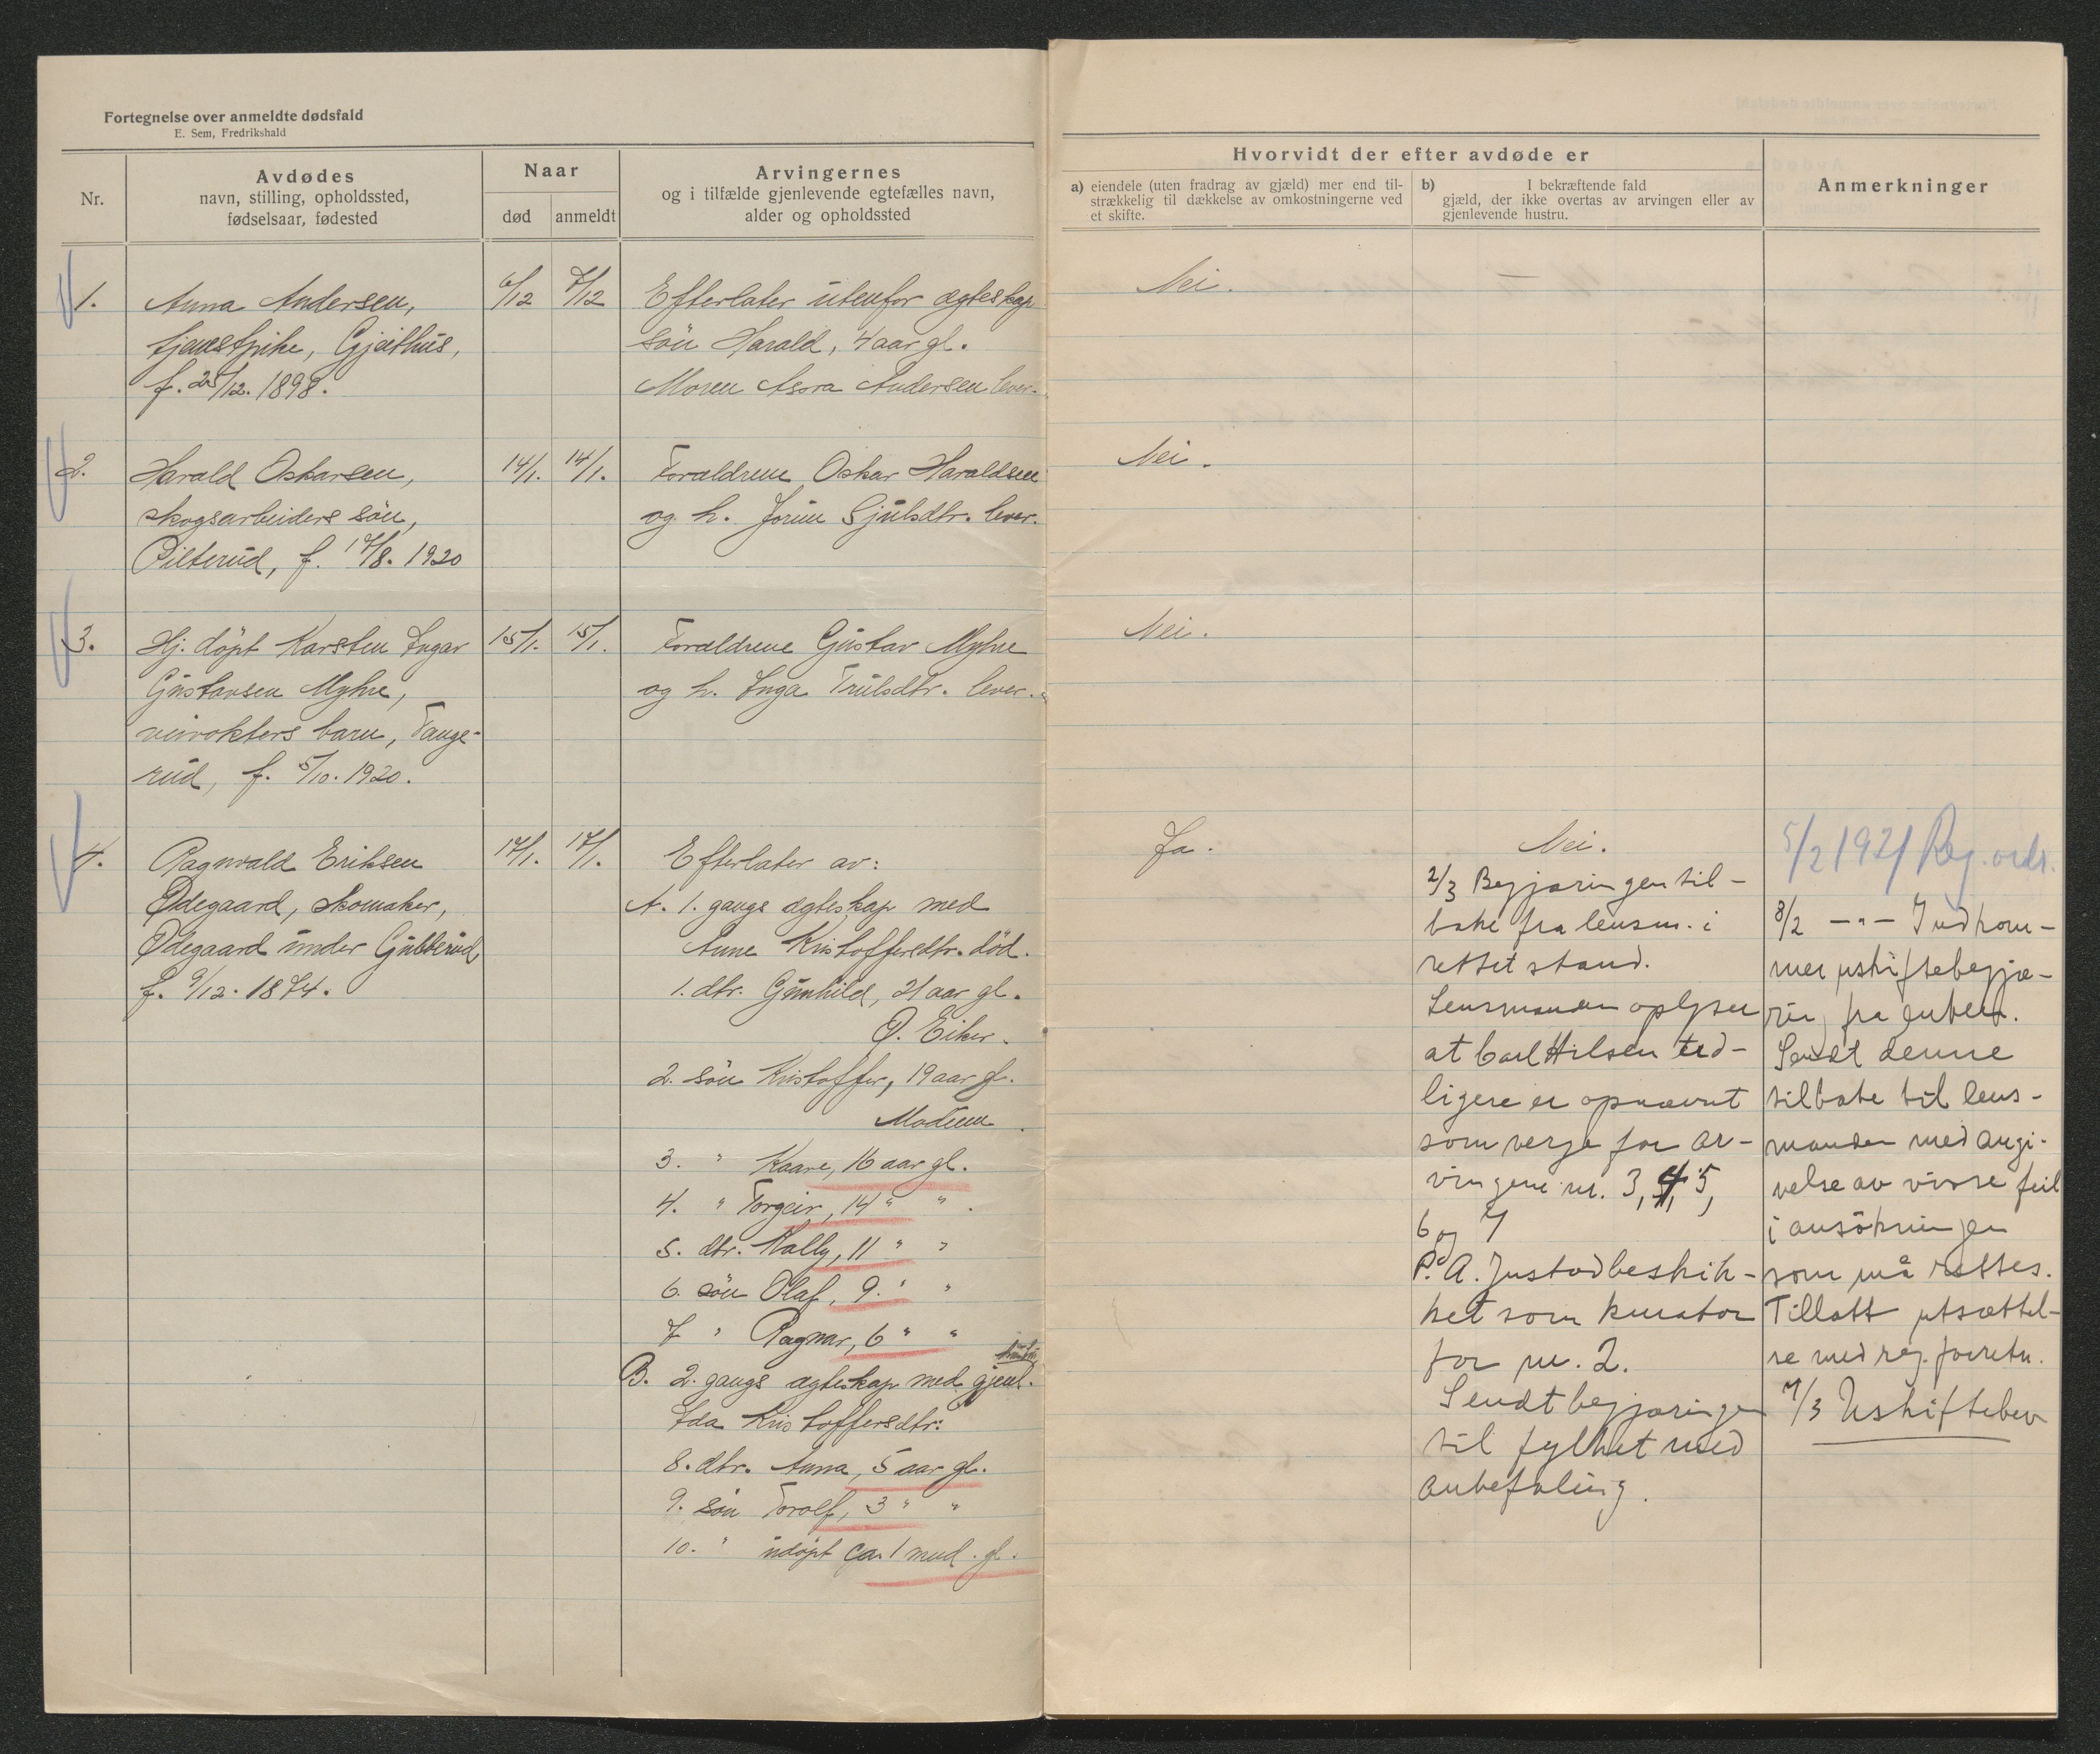 Fortegnelse over anmeldte dødsfald
E. Sem, Fredrikshald
Nr.
Avdødes
navn, stilling, opholdssted,
fødselsaar, fødested
Naar
død
anmeldt
Arvingernes
og i tilfælde gjenlevende egtefælles navn,
alder og opholdssted
Hvorvidt der efter avdøde er
a) eiendele (uten fradrag av gjæld) mer end til-
strækkelig til dækkelse av omkostningerne ved
et skifte.
b) I bekræftende fald
gjæld, der ikke overtas av arvingen eller av
gjenlevende hustru.
Anmerkninger
1.
Anna Andersen,
tjenestpike, Gjeithus,
f. 25/12. 1898.
6/12
7/12
Efterlater utenfor ægteskap
sön Harald, 4 aar gl.
Moren Asora Andersen lever.
Nei.
—
2.
Harald Oskarsen,
skogsarbeiders sön,
Pilterud, f. 17/8. 1920
14/1.
14/1.
Forældrene Oskar Haraldsen
og h. Jorun Sjulsdtr. lever.
Nei.
3.
Hj. döpt Karsten Ingar
Gustavsen Myhre,
veivokters barn, Tange-
rud, f. 5/10. 1920.
15/1.
15/1.
Forældrene Gustav Myhre
og h. Inga Trulsdtr. lever.
Nei.
4.
Ragnvald Eriksen
Ødegaard, skomaker,
Ødegaard under Gubberud
f. 9/12. 1874.
17/1.
17/1.
Efterlater av:
A. 1. gangs ægteskap med
Anne Kristoffersdtr. död.
1. dtr. Gunhild, 21 aar gl.
Ø. Eiker.
2. sön Kristoffer, 19 aar gl.
Modum.
3. " Kaare, 16 aar gl.
4. " Torgeir, 14 " " .
5. dtr. Kally, 11 " "
6. sön Olaf, 9. " "
7 " Ragnar, 6 " "
B. 2. gangs ægteskap med gjenl.
Ida Kristoffersdtr:
8. dtr. Anna, 5 aar gl.
9. sön Torolf, 3 " "
10. " udöpt ca. 1 mnd. gl.
Ja.
Nei.
2/3 Begjæringen til-
bake fra lensm. i
rettet stand.
Lensmanden oplyser
at Carl Hilsen tid-
ligere er opnævnt
som verge for ar-
vingene nr. 3, 4, 5,
6 og 7
P. A. Justad beskik-
ket som kurator
for nr. 2.
Sendt begjæringen
til fylket med
anbefaling.
5/2 1921 Reg. ordr.
8/2 —"— Indkom-
mer uskiftebegjæ-
rin fra enken.
Sendt denne
tilbake til lens-
manden med angi-
velse av visse feil
i ansökningen
som må rettes.
Tillatt utsættel-
se med reg. forretn.
7/3 Uskiftebev